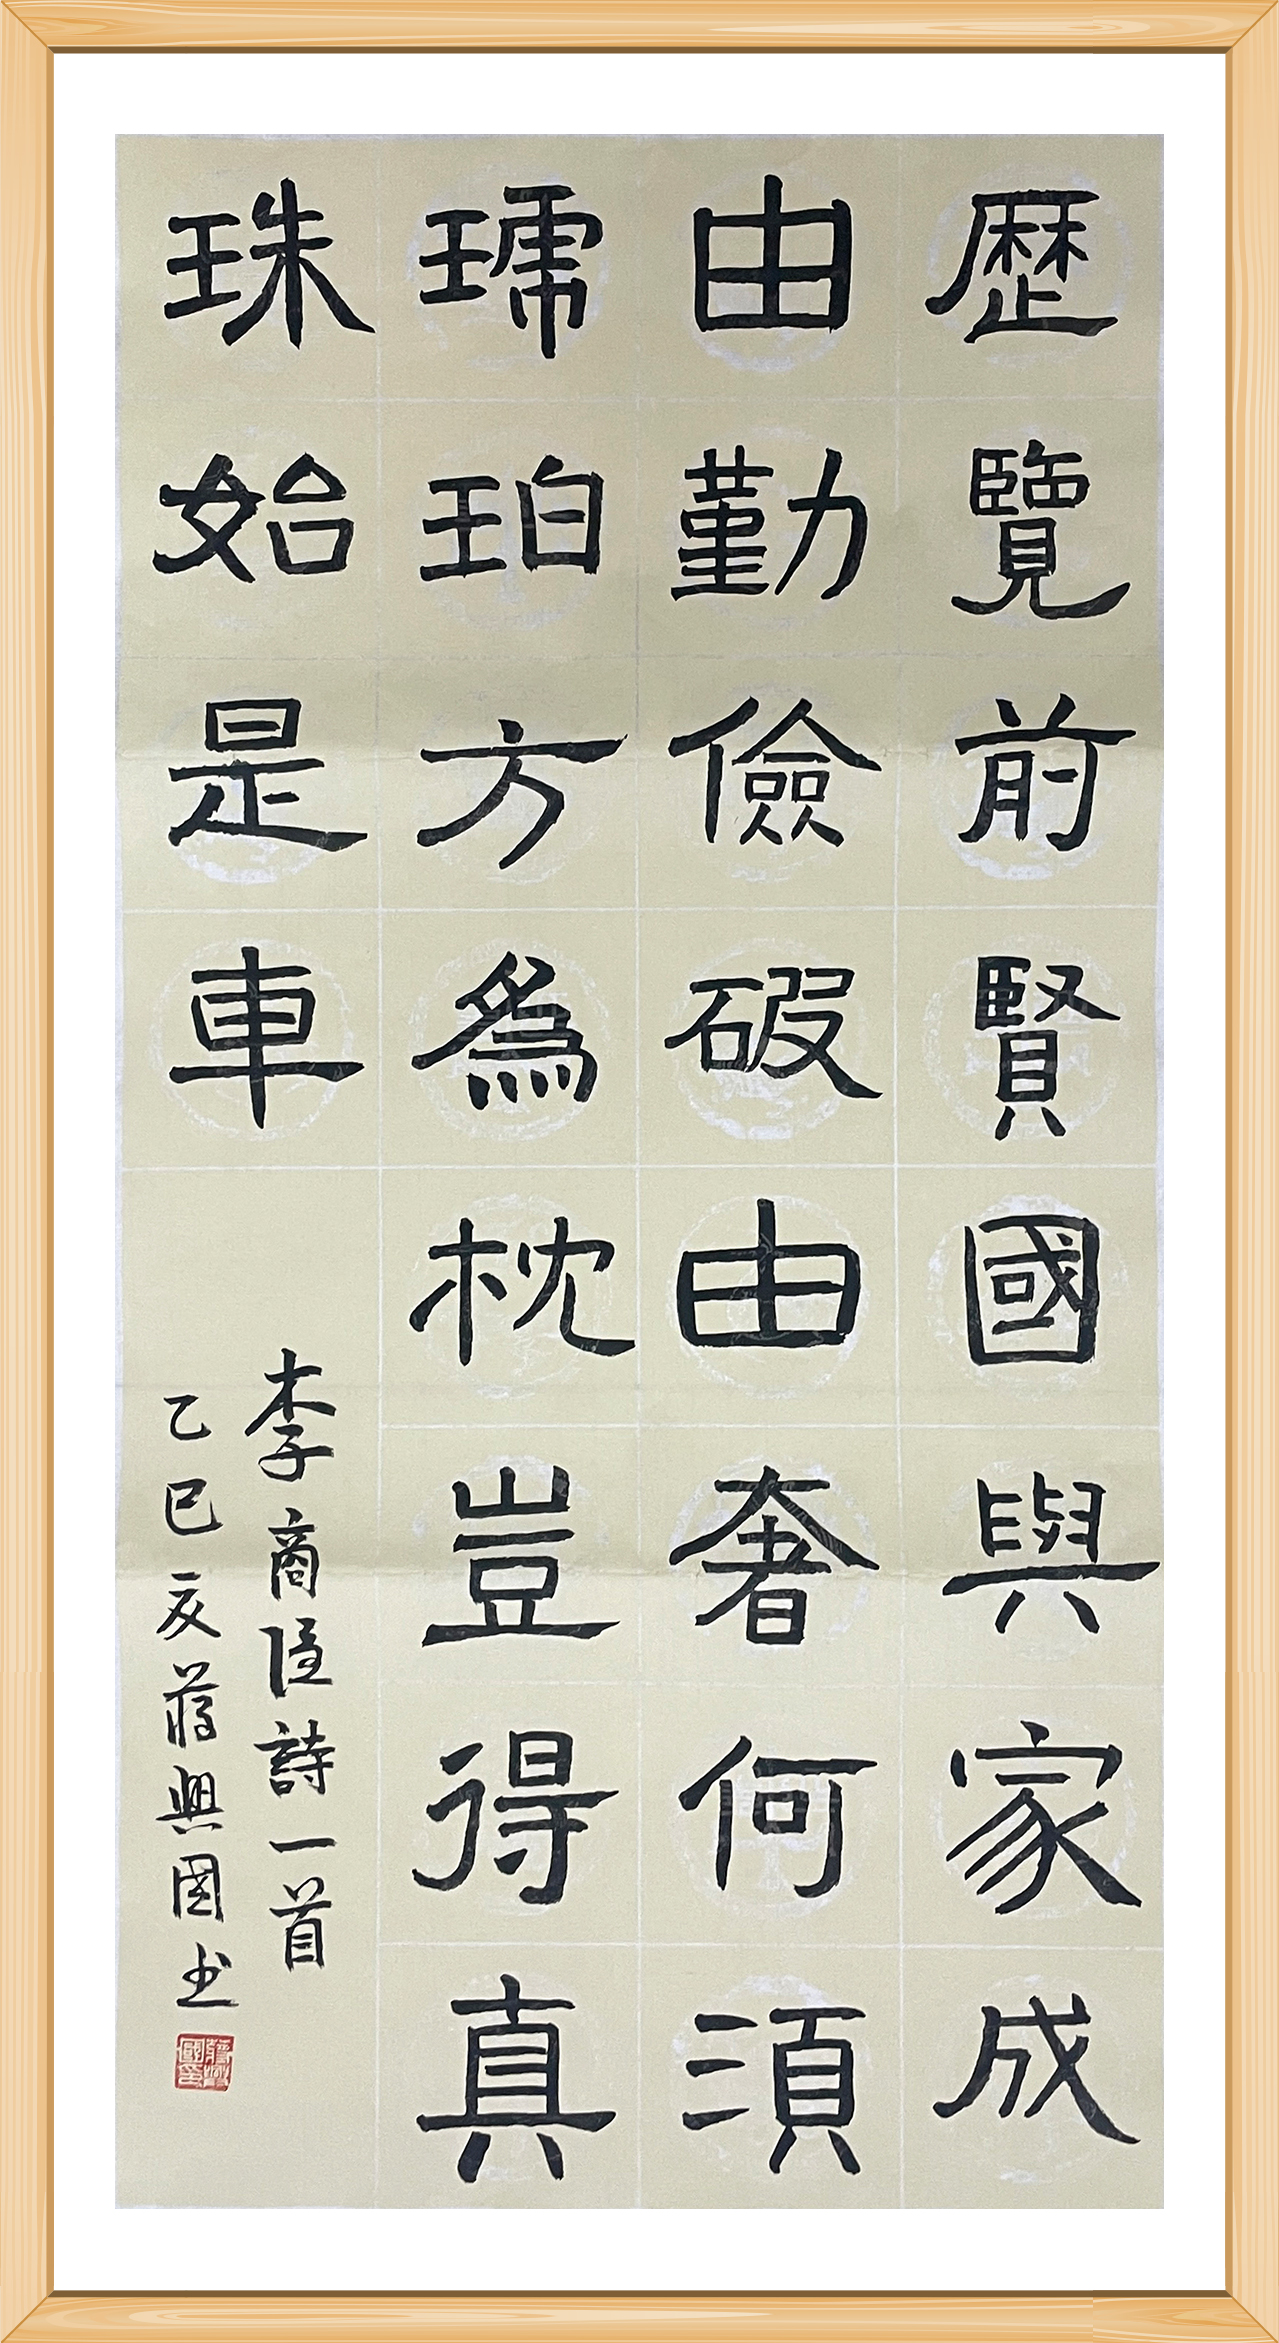 歴覽前賢國與家成
由勤儉破由奢何須
琥珀方為枕豈得真
珠始是車
李商隱詩一首
乙巳夏蔣興國书
蔣興國印